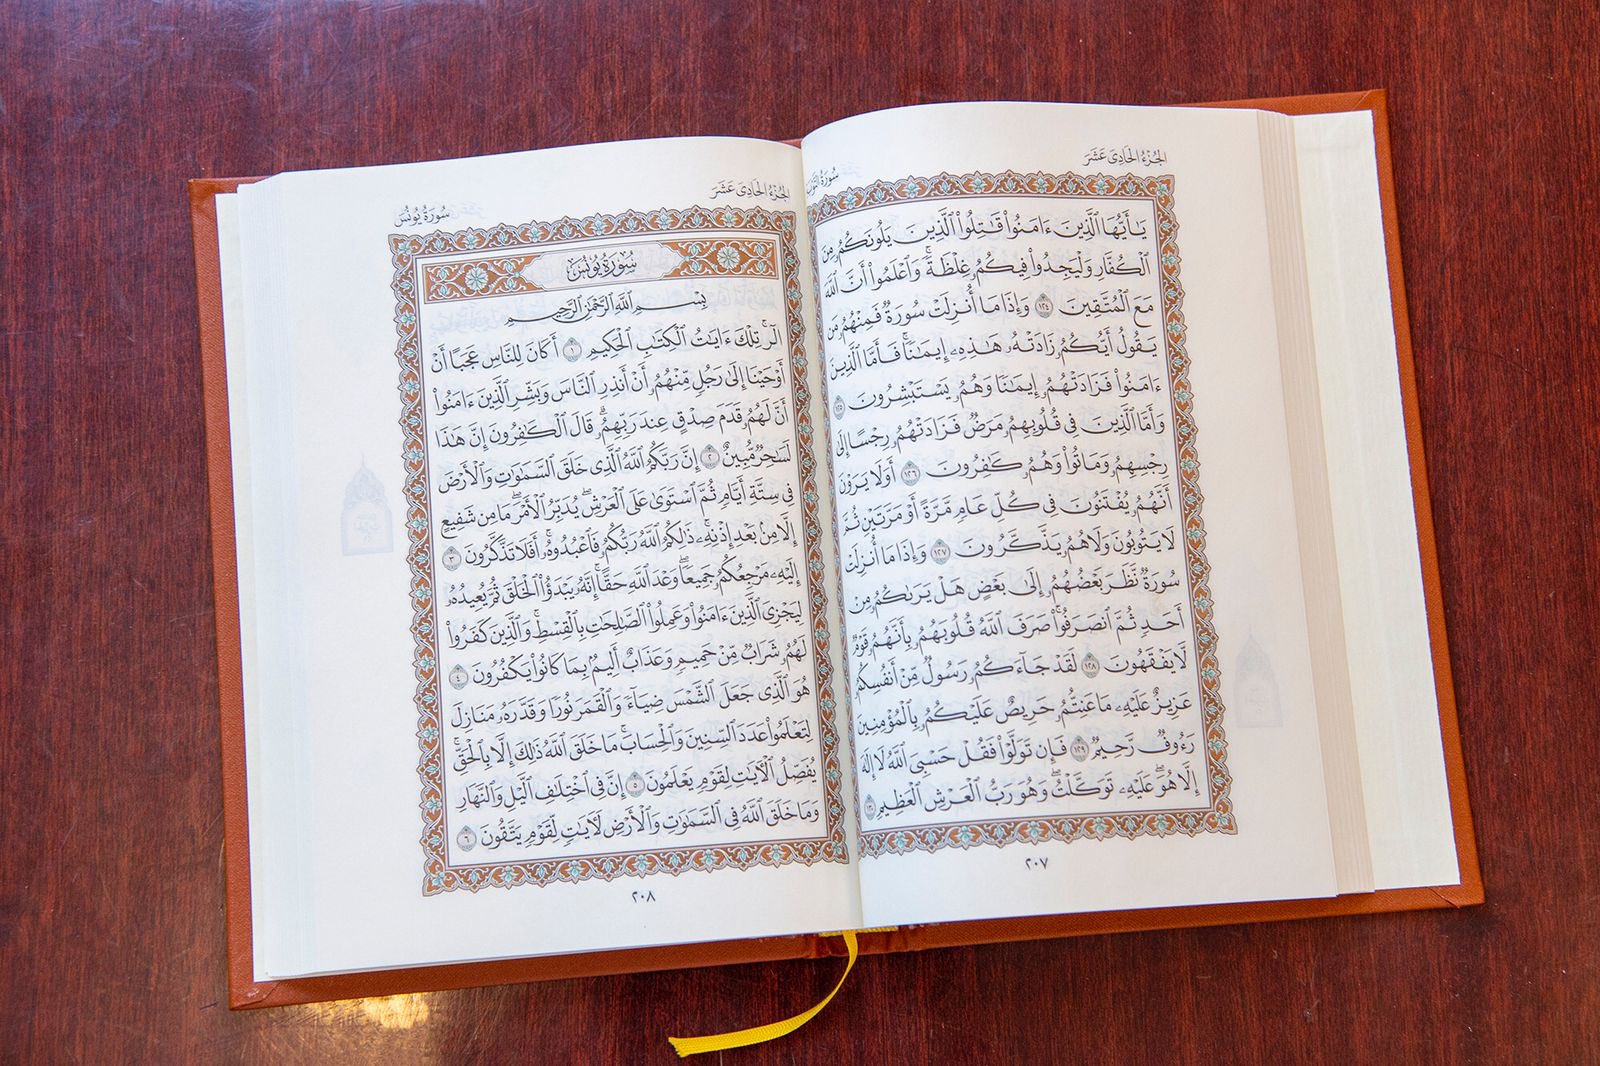 الجُزْءُ الحَادِىَ عَشَرَ
سُورَةُ التَّوْبَةِ
يَٰٓأَيُّهَا ٱلَّذِينَ ءَامَنُوا۟ قَٰتِلُوا۟ ٱلَّذِينَ يَلُونَكُمُۥ مِنَ
ٱلْكُفَّارِ وَلْيَجِدُوا۟ فِيكُمُۥ غِلْظَةً ۚ وَٱعْلَمُوٓا۟ أَنَّ ٱللَّهَ
مَعَ ٱلْمُتَّقِينَ ١٢٤ وَإِذَا مَآ أُنزِلَتْ سُورَةٌ فَمِنْهُمُۥ مَن
يَقُولُ أَيُّكُمُۥ زَادَتْهُۥ هَٰذِهِۦٓ إِيمَٰنًا ۚ فَأَمَّا ٱلَّذِينَ
ءَامَنُوا۟ فَزَادَتْهُمُۥ إِيمَٰنًا وَهُمُۥ يَسْتَبْشِرُونَ ١٢٥
وَأَمَّا ٱلَّذِينَ فِى قُلُوبِهِمُۥ مَرَضٌ فَزَادَتْهُمُۥ رِجْسًا إِلَىٰ
رِجْسِهِمُۥ وَمَاتُوا۟ وَهُمُۥ كَٰفِرُونَ ١٢٦ أَوَلَا يَرَوْنَ
أَنَّهُمُۥ يُفْتَنُونَ فِى كُلِّ عَامٍ مَّرَّةً أَوْ مَرَّتَيْنِ ثُمَّ
لَا يَتُوبُونَ وَلَا هُمُۥ يَذَّكَّرُونَ ١٢٧ وَإِذَا مَآ أُنزِلَتْ
سُورَةٌ نَّظَرَ بَعْضُهُمُۥٓ إِلَىٰ بَعْضٍ هَلْ يَرَىٰكُمُۥ مِنْ
أَحَدٍ ثُمَّ ٱنصَرَفُوا۟ ۚ صَرَفَ ٱللَّهُ قُلُوبَهُمُۥ بِأَنَّهُمُۥ قَوْمٌ
لَّا يَفْقَهُونَ ١٢٨ لَقَدْ جَآءَكُمُۥ رَسُولٌ مِّنْ أَنفُسِكُمُۥ
عَزِيزٌ عَلَيْهِۦ مَا عَنِتُّمُۥ حَرِيصٌ عَلَيْكُمُۥ بِٱلْمُؤْمِنِينَ
رَءُوفٌ رَّحِيمٌ ١٢٩ فَإِن تَوَلَّوْا۟ فَقُلْ حَسْبِىَ ٱللَّهُ لَآ إِلَٰهَ
إِلَّا هُوَ ۖ عَلَيْهِۦ تَوَكَّلْتُ ۖ وَهُوَ رَبُّ ٱلْعَرْشِ ٱلْعَظِيمِ ١٣٠
٢٠٧
الجُزْءُ الحَادِىَ عَشَرَ
سُورَةُ يُونُسَ
سُورَةُ يُونُسَ
بِسْمِ ٱللَّهِ ٱلرَّحْمَٰنِ ٱلرَّحِيمِ
الٓر ۚ تِلْكَ ءَايَٰتُ ٱلْكِتَٰبِ ٱلْحَكِيمِ ١ أَكَانَ لِلنَّاسِ عَجَبًا أَنْ
أَوْحَيْنَآ إِلَىٰ رَجُلٍ مِّنْهُمُۥٓ أَنْ أَنذِرِ ٱلنَّاسَ وَبَشِّرِ ٱلَّذِينَ ءَامَنُوٓا۟
أَنَّ لَهُمُۥ قَدَمَ صِدْقٍ عِندَ رَبِّهِمُۥ ۗ قَالَ ٱلْكَٰفِرُونَ إِنَّ هَٰذَا
لَسَٰحِرٌ مُّبِينٌ ٢ إِنَّ رَبَّكُمُۥ ٱللَّهُ ٱلَّذِى خَلَقَ ٱلسَّمَٰوَٰتِ وَٱلْأَرْضَ
فِى سِتَّةِ أَيَّامٍ ثُمَّ ٱسْتَوَىٰ عَلَى ٱلْعَرْشِ ۖ يُدَبِّرُ ٱلْأَمْرَ ۖ مَا مِن شَفِيعٍ
إِلَّا مِنۢ بَعْدِ إِذْنِهِۦ ۚ ذَٰلِكُمُ ٱللَّهُ رَبُّكُمُۥ فَٱعْبُدُوهُۥ ۚ أَفَلَا تَذَّكَّرُونَ ٣
إِلَيْهِۦ مَرْجِعُكُمُۥ جَمِيعًا ۖ وَعْدَ ٱللَّهِ حَقًّا ۚ إِنَّهُۥ يَبْدَؤُا۟ ٱلْخَلْقَ ثُمَّ يُعِيدُهُۥ
لِيَجْزِىَ ٱلَّذِينَ ءَامَنُوا۟ وَعَمِلُوا۟ ٱلصَّٰلِحَٰتِ بِٱلْقِسْطِ ۚ وَٱلَّذِينَ كَفَرُوا۟
لَهُمُۥ شَرَابٌ مِّنْ حَمِيمٍ وَعَذَابٌ أَلِيمٌۢ بِمَا كَانُوا۟ يَكْفُرُونَ ٤
هُوَ ٱلَّذِى جَعَلَ ٱلشَّمْسَ ضِيَآءً وَٱلْقَمَرَ نُورًا وَقَدَّرَهُۥ مَنَازِلَ
لِتَعْلَمُوا۟ عَدَدَ ٱلسِّنِينَ وَٱلْحِسَابَ ۚ مَا خَلَقَ ٱللَّهُ ذَٰلِكَ إِلَّا بِٱلْحَقِّ ۚ
يُفَصِّلُ ٱلْأَيَٰتِ لِقَوْمٍ يَعْلَمُونَ ٥ إِنَّ فِى ٱخْتِلَٰفِ ٱلَّيْلِ وَٱلنَّهَارِ
وَمَا خَلَقَ ٱللَّهُ فِى ٱلسَّمَٰوَٰتِ وَٱلْأَرْضِ لَأٓيَٰتٍ لِّقَوْمٍ يَتَّقُونَ ٦
٢٠٨